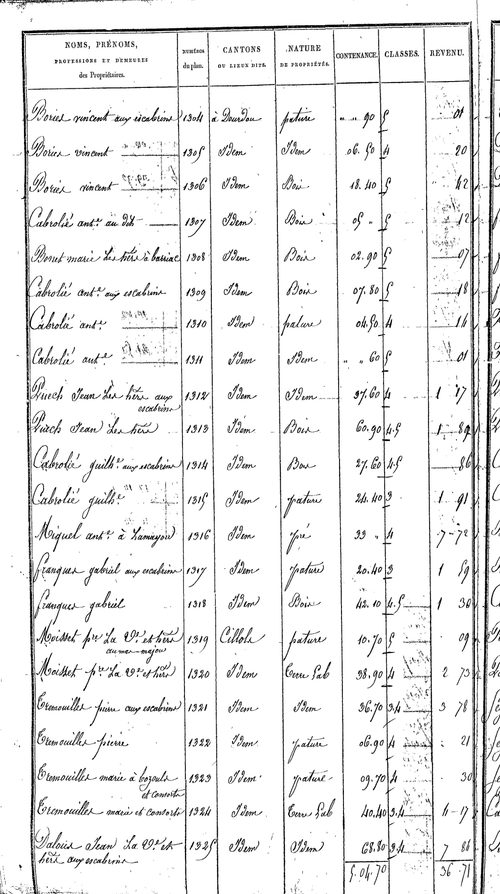 NOMS, PRÉNOMS, PROFESSIONS ET DEMEURES des Propriétaires. NUMÉROS du plan. CANTONS OU LIEUX DITS. NATURE DE PROPRIÉTÉS. CONTENANCE. CLASSES. REVENU.
Bories vincent aux escabrins 1304 à Dourdou pature " " 90 5 01
Bories vincent 1305 Idem Idem 06. 50 4 20
Bories vincent 1306 Idem Bois 18. 40 5 42
Cabrolié ant.e au dit 1307 Idem Bois 05 " 5 12
Bonet marie Les hérs à barriac 1308 Idem Bois 02. 90 5 07
Cabrolié ant.e aux escabrins 1309 Idem Bois 07. 80 5 18
Cabrolié ant.e 1310 Idem pature 04. 50 4 16
Cabrolié ant.e 1311 Idem Idem " " 60 5 01
Puech Jean Les hérs aux escabrins 1312 Idem Idem 37. 60 4 1 17
Puech Jean Les hérs 1313 Idem Bois 60. 90 4.5 1 89
Cabrolié guilh.e aux escabrins 1314 Idem Bois 27. 60 4.5 86
Cabrolié guilh.e 1315 Idem pature 24. 40 3 1 91
Miquel ant.e à Lumayou 1316 Idem pré 33 " 4 7 72
franques gabriel aux escabrins 1317 Idem pature 20. 40 3 1 59
franques gabriel 1318 Idem Bois 42. 10 4.5 1 30
Moisset p.re La V.e et hérs au mas-majou 1319 Cillols pature 10. 70 5 09
Moisset p.re La V.e et hérs 1320 Idem Terre Lab 38. 90 4 2 73
Tremouilles pierre aux escabrins 1321 Idem Idem 36. 70 3.4 3 78
Tremouilles pierre 1322 Idem pature 06. 90 4 21
Tremouilles marie à bozouls et consorts 1323 Idem pature 09. 70 4 30
Tremouilles marie et consorts 1324 Idem Terre Lab 40. 40 3.4 4 17
Dalous Jean La V.e et hérs aux escabrins 1325 Idem Idem 68. 80 3.4 7 86
5. 04. 70 36 71